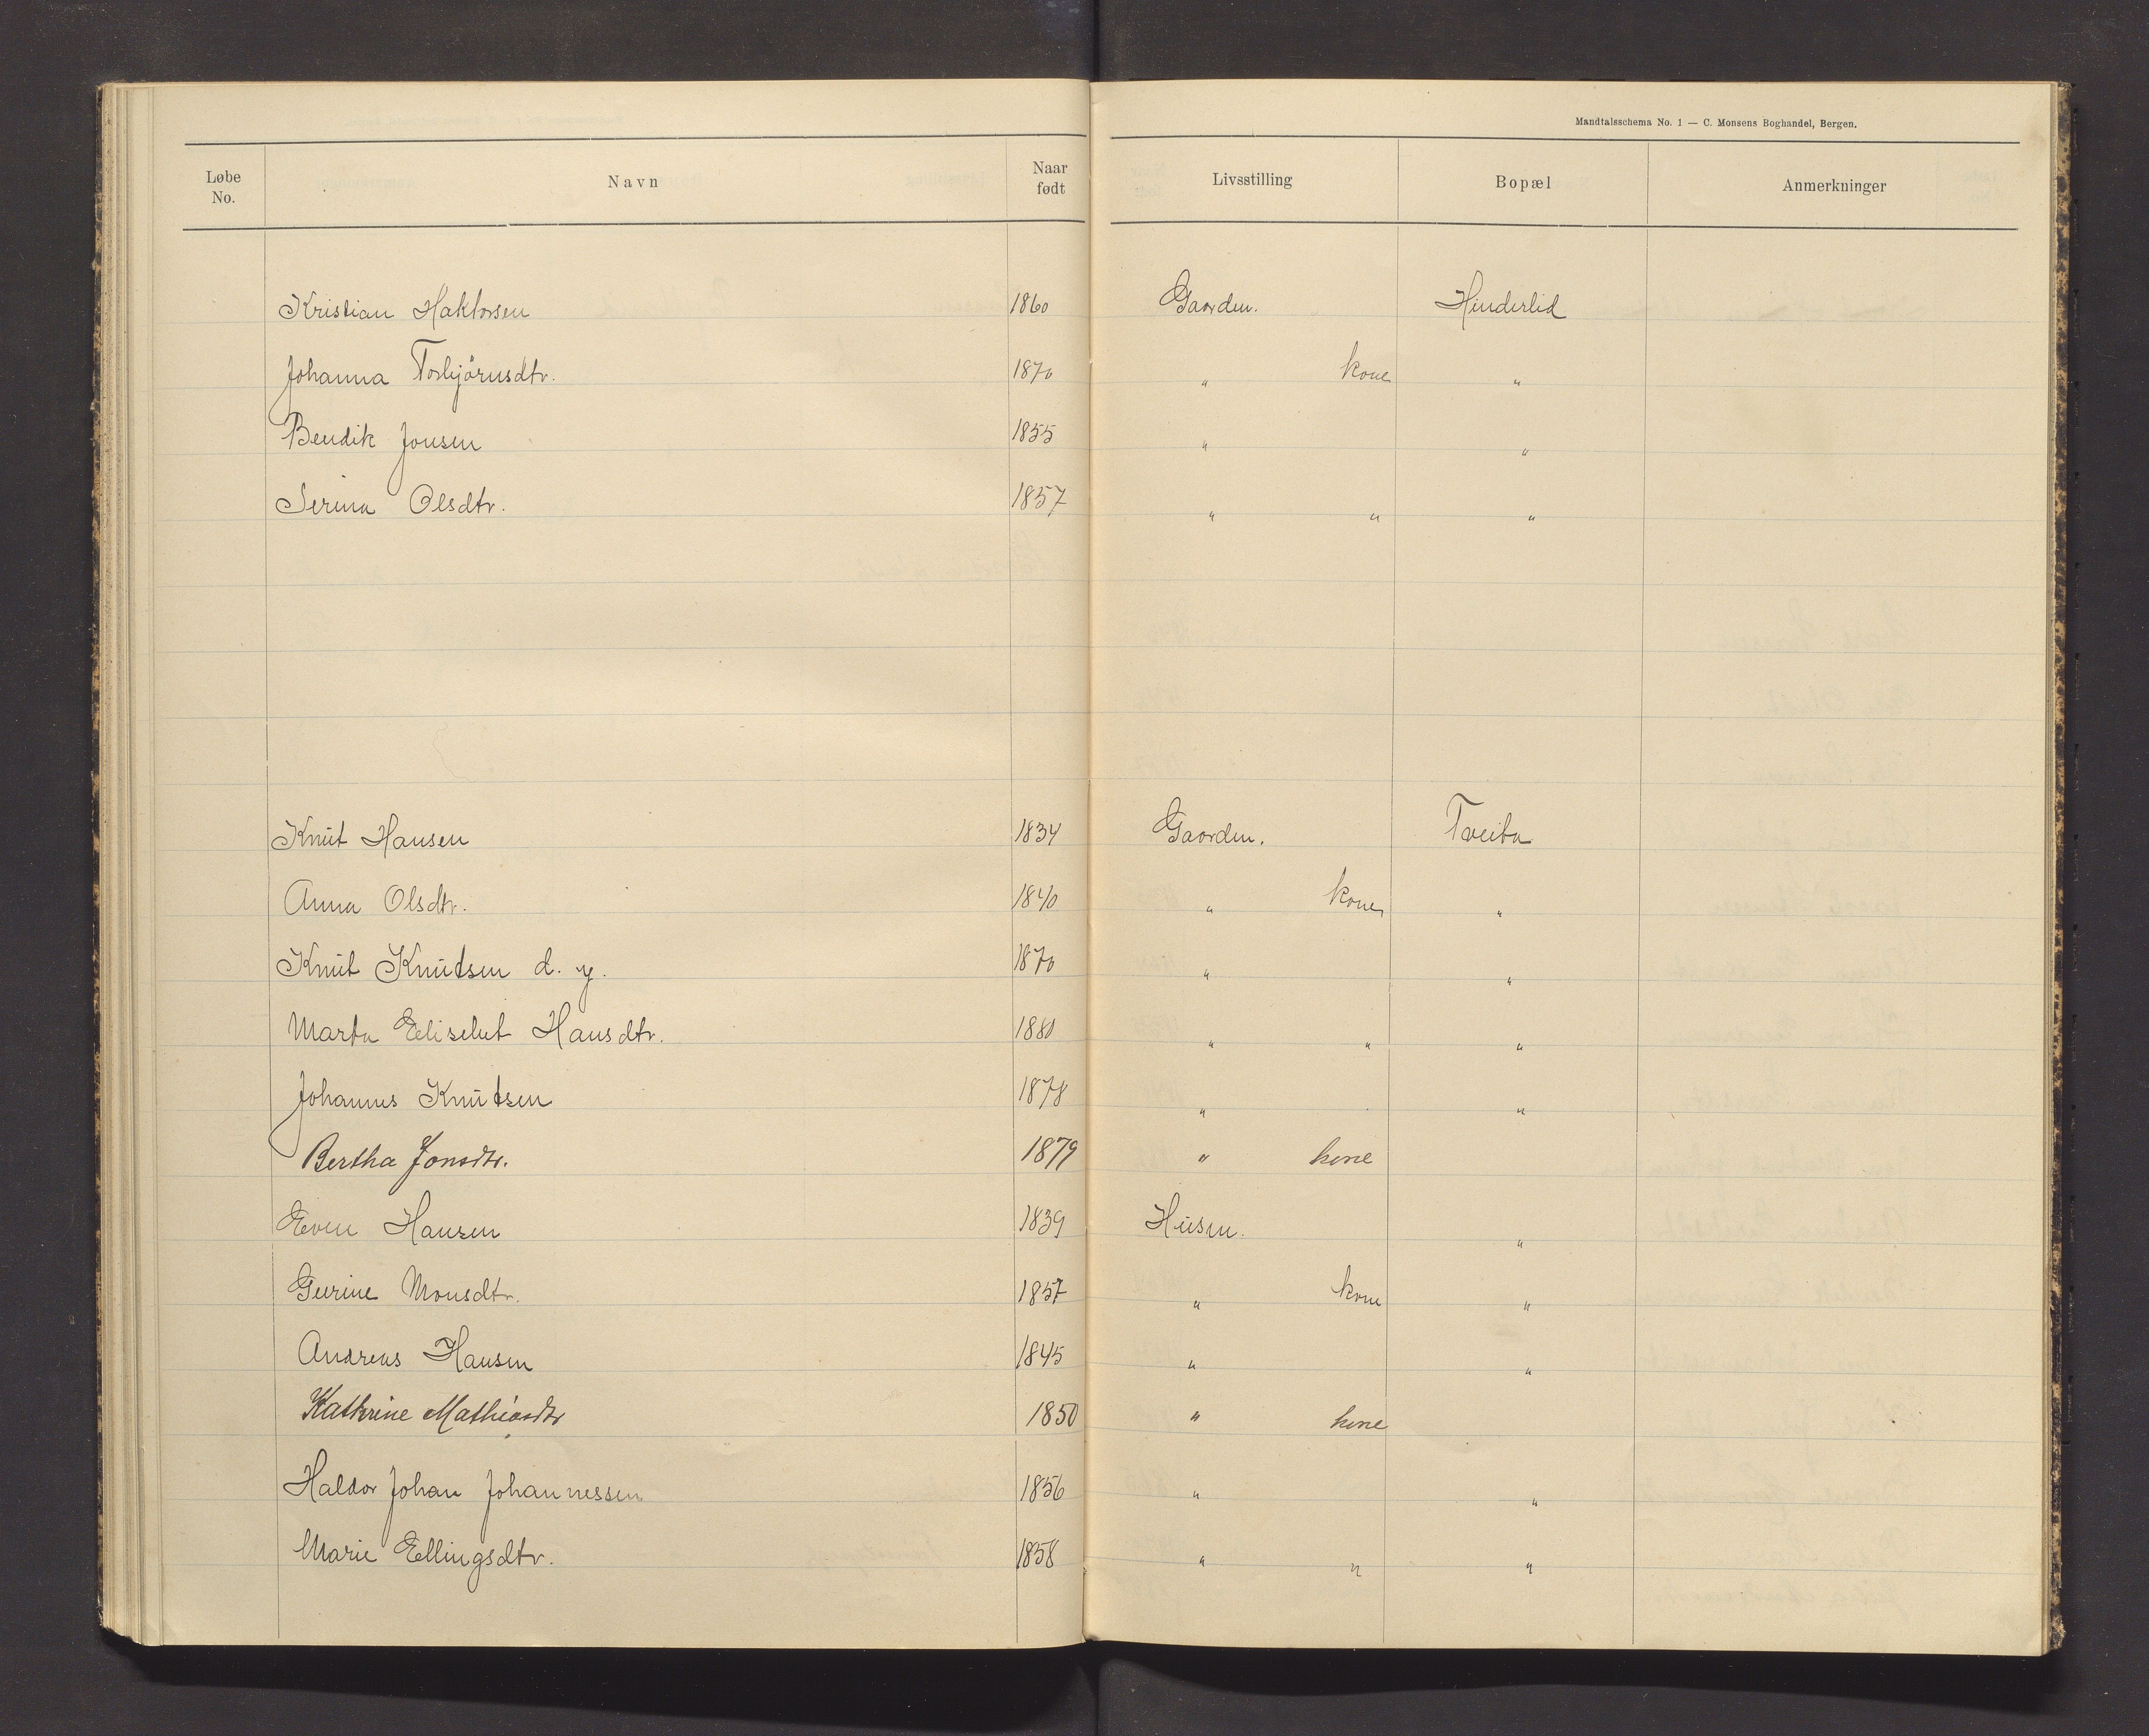 Mandtalsschema No. 1 — C. Monsens Boghandel, Bergen.
Løbe No. Navn Naar født Livsstilling Bopæl Anmerkninger
Kristian Haktorsen 1860 Gaarden. Hinderlid
Johanna Torbjörnsdtr. 1870 " kone "
Bendik Jonsen 1855 " "
Serina Olsdtr. 1857 " " "
Knut Hansen 1834 Gaarden. Tveita
Anna Olsdtr. 1840 " kone "
Knut Knutsen d. y. 1870 " "
Marta Elisebet Hansdtr. 1880 " " "
Johannes Knutsen 1878 " "
Bertha Jonsdtr. 1879 " kone
Even Hansen 1839 Husm. "
Gurine Monsdtr. 1857 " kone "
Andreas Hansen 1845 " "
Kathrine Mathiasdtr 1850 " kone
Haldor Johan Johannessen 1856 " "
Marie Ellingsdtr. 1858 " " "